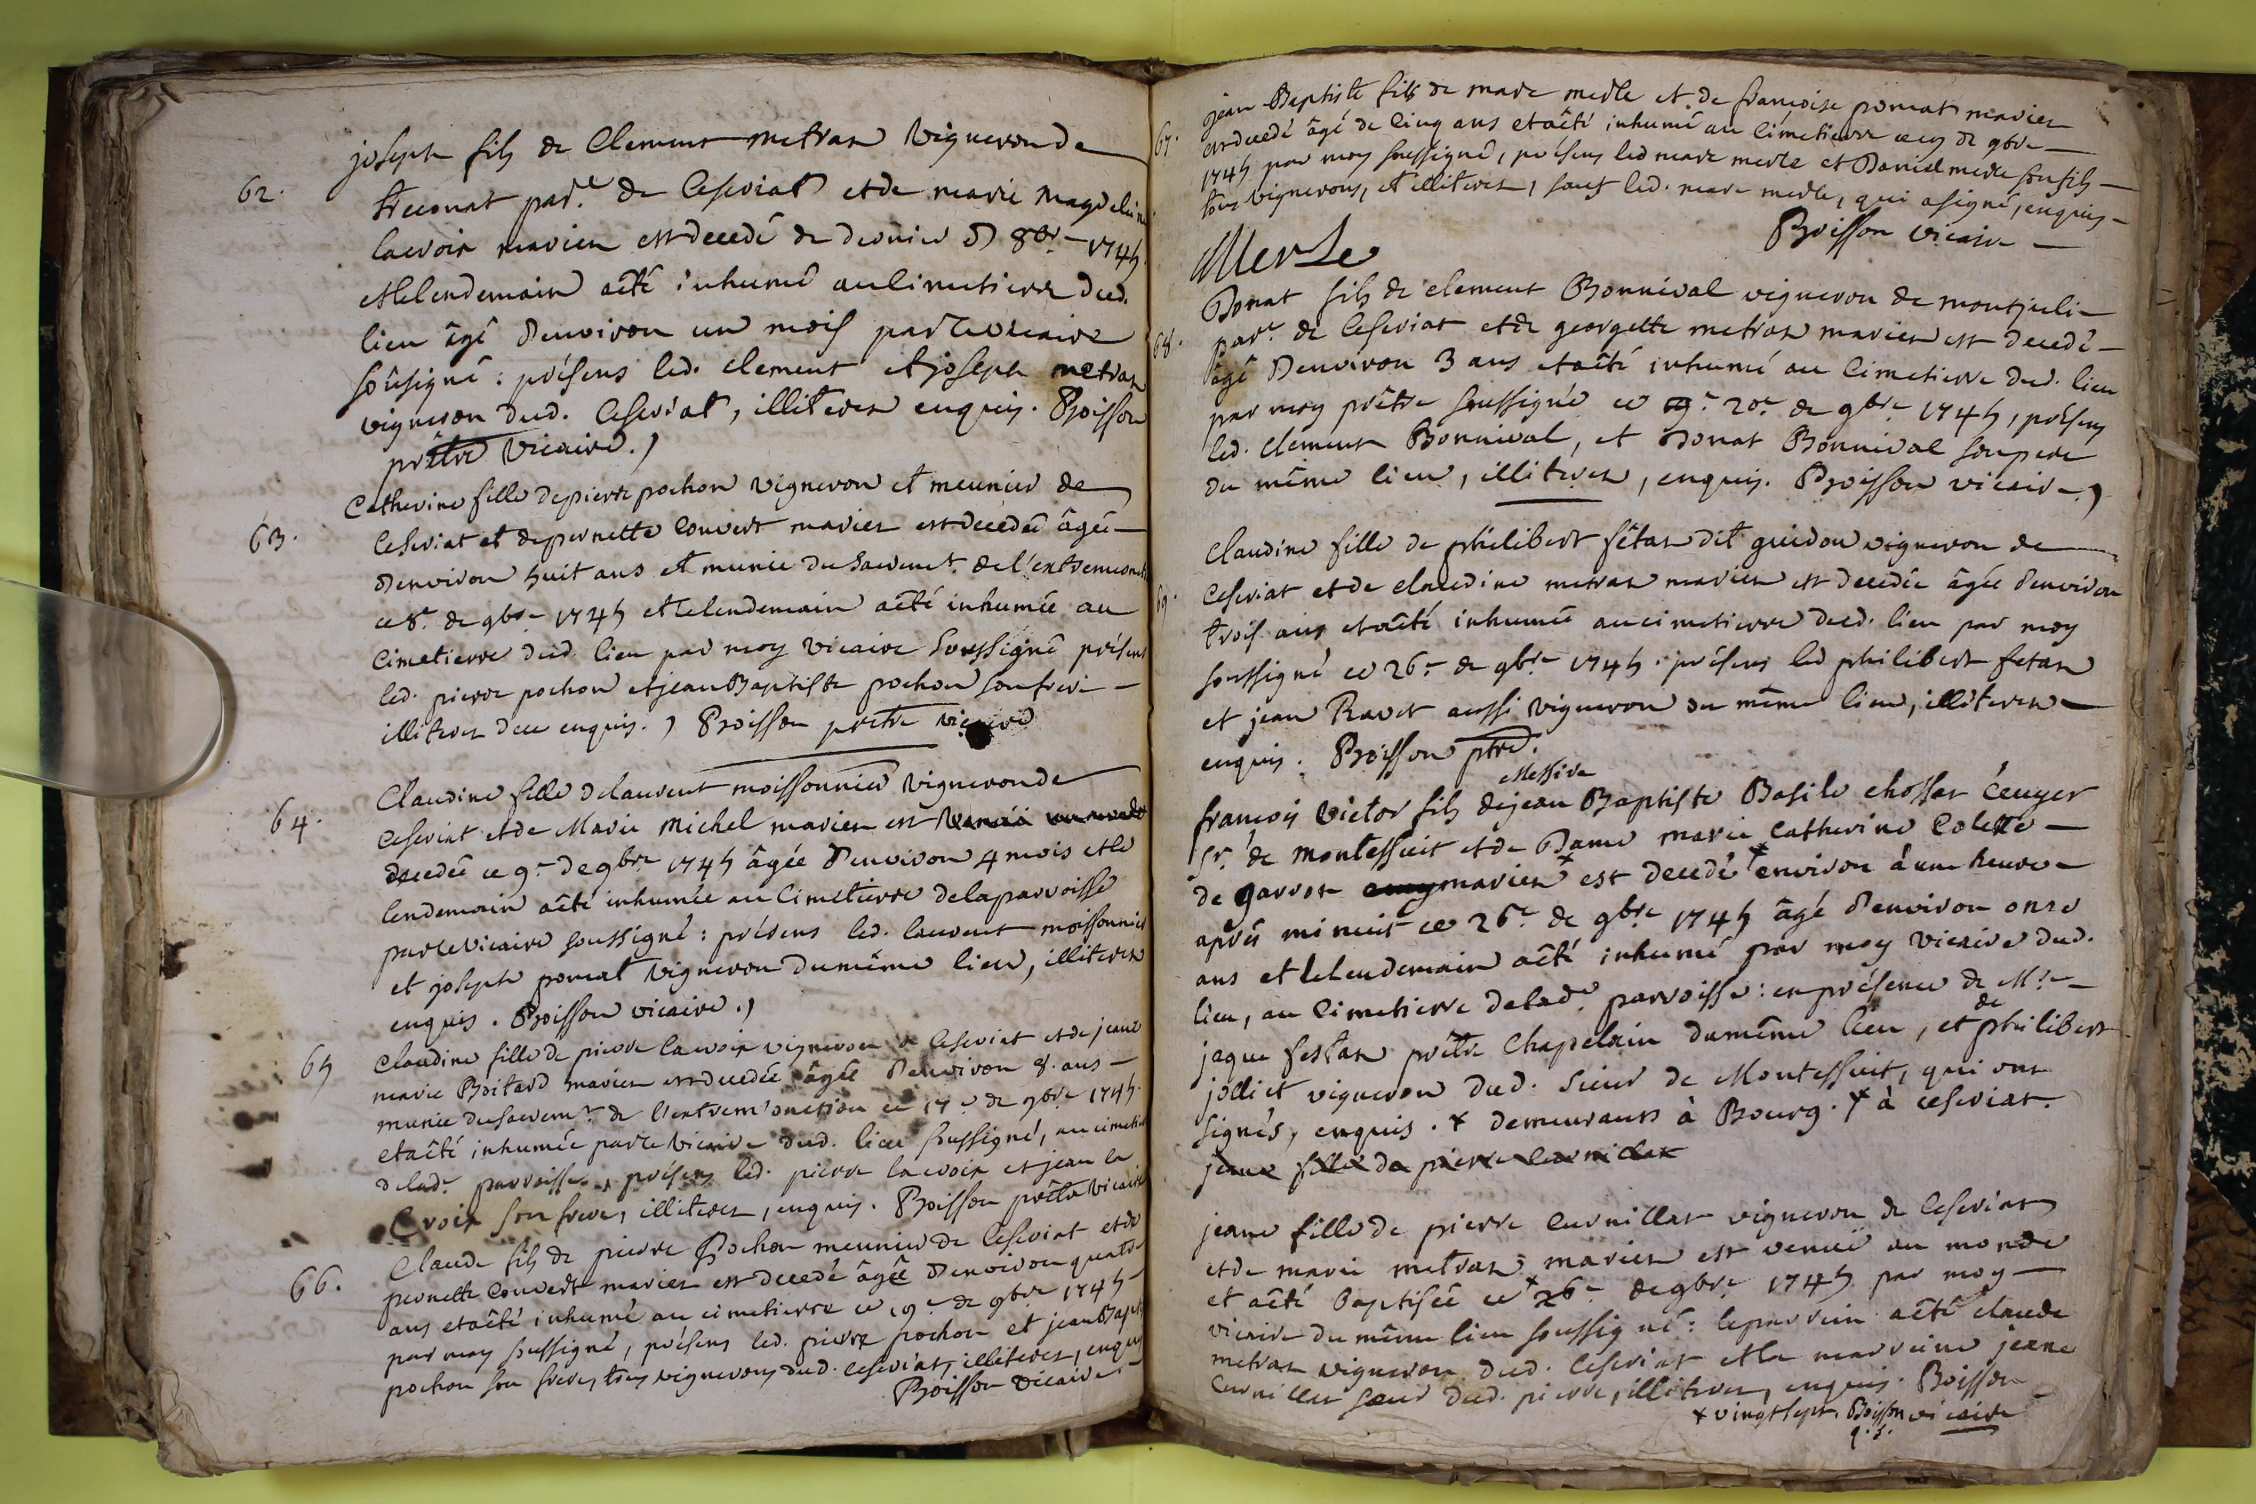 62.
joseph fils de Clement metras vigneron de
treconat par.e de Ceseriat et de marie Magdeleine
lacroix mariez est decedé de dernier d 8bre 1745
et lelendemain aêté inhumé aucimetierre dud.
lieu âgé d'environ un mois par le vicaire
soûsigné : présens led. clement et joseph metras
vigneron dud. Ceseriat, illiterez enquis. Boisson
prêtre vicaire.)
63.
Catherine fille depierre pochon vigneron et meunier de
Ceseriat et depernette Convert mariez est decedeé âgée
d'environ huit ans et munie du Sacremt. de l'extremeonct
ce 8e. de 9bre 1745 et lelendemain aêté inhumée au
Cimetierre dud. lieu par moy vicaire Soussigné présens
led. pierre pochon et jean Baptiste pochon son frere
illiterez dece enquis.) Boisson prêtre vicaire
64.
Claudine fille delaurent moissonnier vigneron de
Ceseriat et de Marie Michel mariez est
decedeé ce 9e. de 9bre 1745 âgée d'environ 4 mois et le
lendemain aêté inhumée au Cimetierre delaparroisse
par levicaire soussigné : présens led. laurent moissonnier
et joseph poncat vigneron dumême lieu, illiterez
enquis. Boisson vicaire.)
65
Claudine fille de pierre lacroix vigneron de Ceseriat et de jeane
marie Boitard mariez est decedée âgée d'environ 8. ans
munie dusacremt. de l'extrem'onction ce 17e. de 9bre 1745.
et aêté inhumée par le vicaire dud. lieu soussigné, au cimetie
delade. parroisse, présens led. pierre lacroix et jean la
Croix son frere, illiterez, enquis. Boisson prêtre vicaire
66.
Claude fils de pierre Pochon meunier de Ceseriat et de
pernette Convert mariez est decedé âgée d'environ quatre
ans et aêté inhumé au cimetierre ce 19e. de 9bre 1745
par moy soussigné, présens led. pierre pochon et jean Bapt
pochon son frere, tous vignerons dud. ceseriat, illiterez, enquis
Boisson vicaire
67.
jean Baptiste fils de marc merle et de françoise poncat mariez
est decedé âgé de Cinq ans et aêté inhumé au cimetierre ce de 9bre
1745 par moy soussigné, présens led marc merle et Daniel merle son fils
tous vignerons, et illiterez, sauf led. marc merle, qui asigné, enquis
Boisson vicaire
Merle
68.
Donat fils de clement Bonnival vigneron de montjuli
par.e de Ceseriat et de georgette metras mariez est decedé
âgé d'environ 3 ans et aêté inhumé au Cimetierre dud. lieu
par moy prêtre soussigné ce 20e. de 9bre 1745, présens
led. clement Bonnival, et Donat Bonnival son pere
du même lieu, illiterez, enquis. Boisson vicaire.)
69.
Claudine fille de philibert fêtan dit guidon vigneron de
Ceseriat et de claudine metras mariez est decedée âgée d'environ
trois ans et aêté inhumée au cimetierre dud. lieu par moy
soussigné ce 26e. de 9bre 1745. présens led philibert fetan
et jean Ravet aussi vigneron du même lieu, illiterez
enquis. Boisson ptre.
Messire
françois victor fils dejean Baptiste Basile chossat écuyer
Sr. de montessuit et de Dame marie Catherine Colette
de garron mariez x est decedé x environ à une heure
après minuit ce 26e. de 9bre 1745 âgé d'environ onze
ans et lelendemain aêté inhumé par moy vicaire dud.
lieu, au Cimetierre delade. parroisse : en présence de Mre
jaque festan prêtre Chapelain dumême lieu, et de philibert
jolliet vigneron dud. Sieur de Montessuit, qui ont
signés, enquis. x demeurants à Bourg. x à ceseriat.
jeane fille de pierre Curnillat
jeane fille de pierre Curnillat vigneron de Ceseriat
et de marie metras mariez est venuë au monde
et aêté baptisée ce x 26e de 9bre 1745 par moy
vicaire du même lieu soussigné : leparrein aêté claude
metras vigneron dud. Ceseriat et la marreine jeane
Curnillat sœur dud. pierre, illiterez, enquis. Boisson
x vingt sept. Boisson vicaire